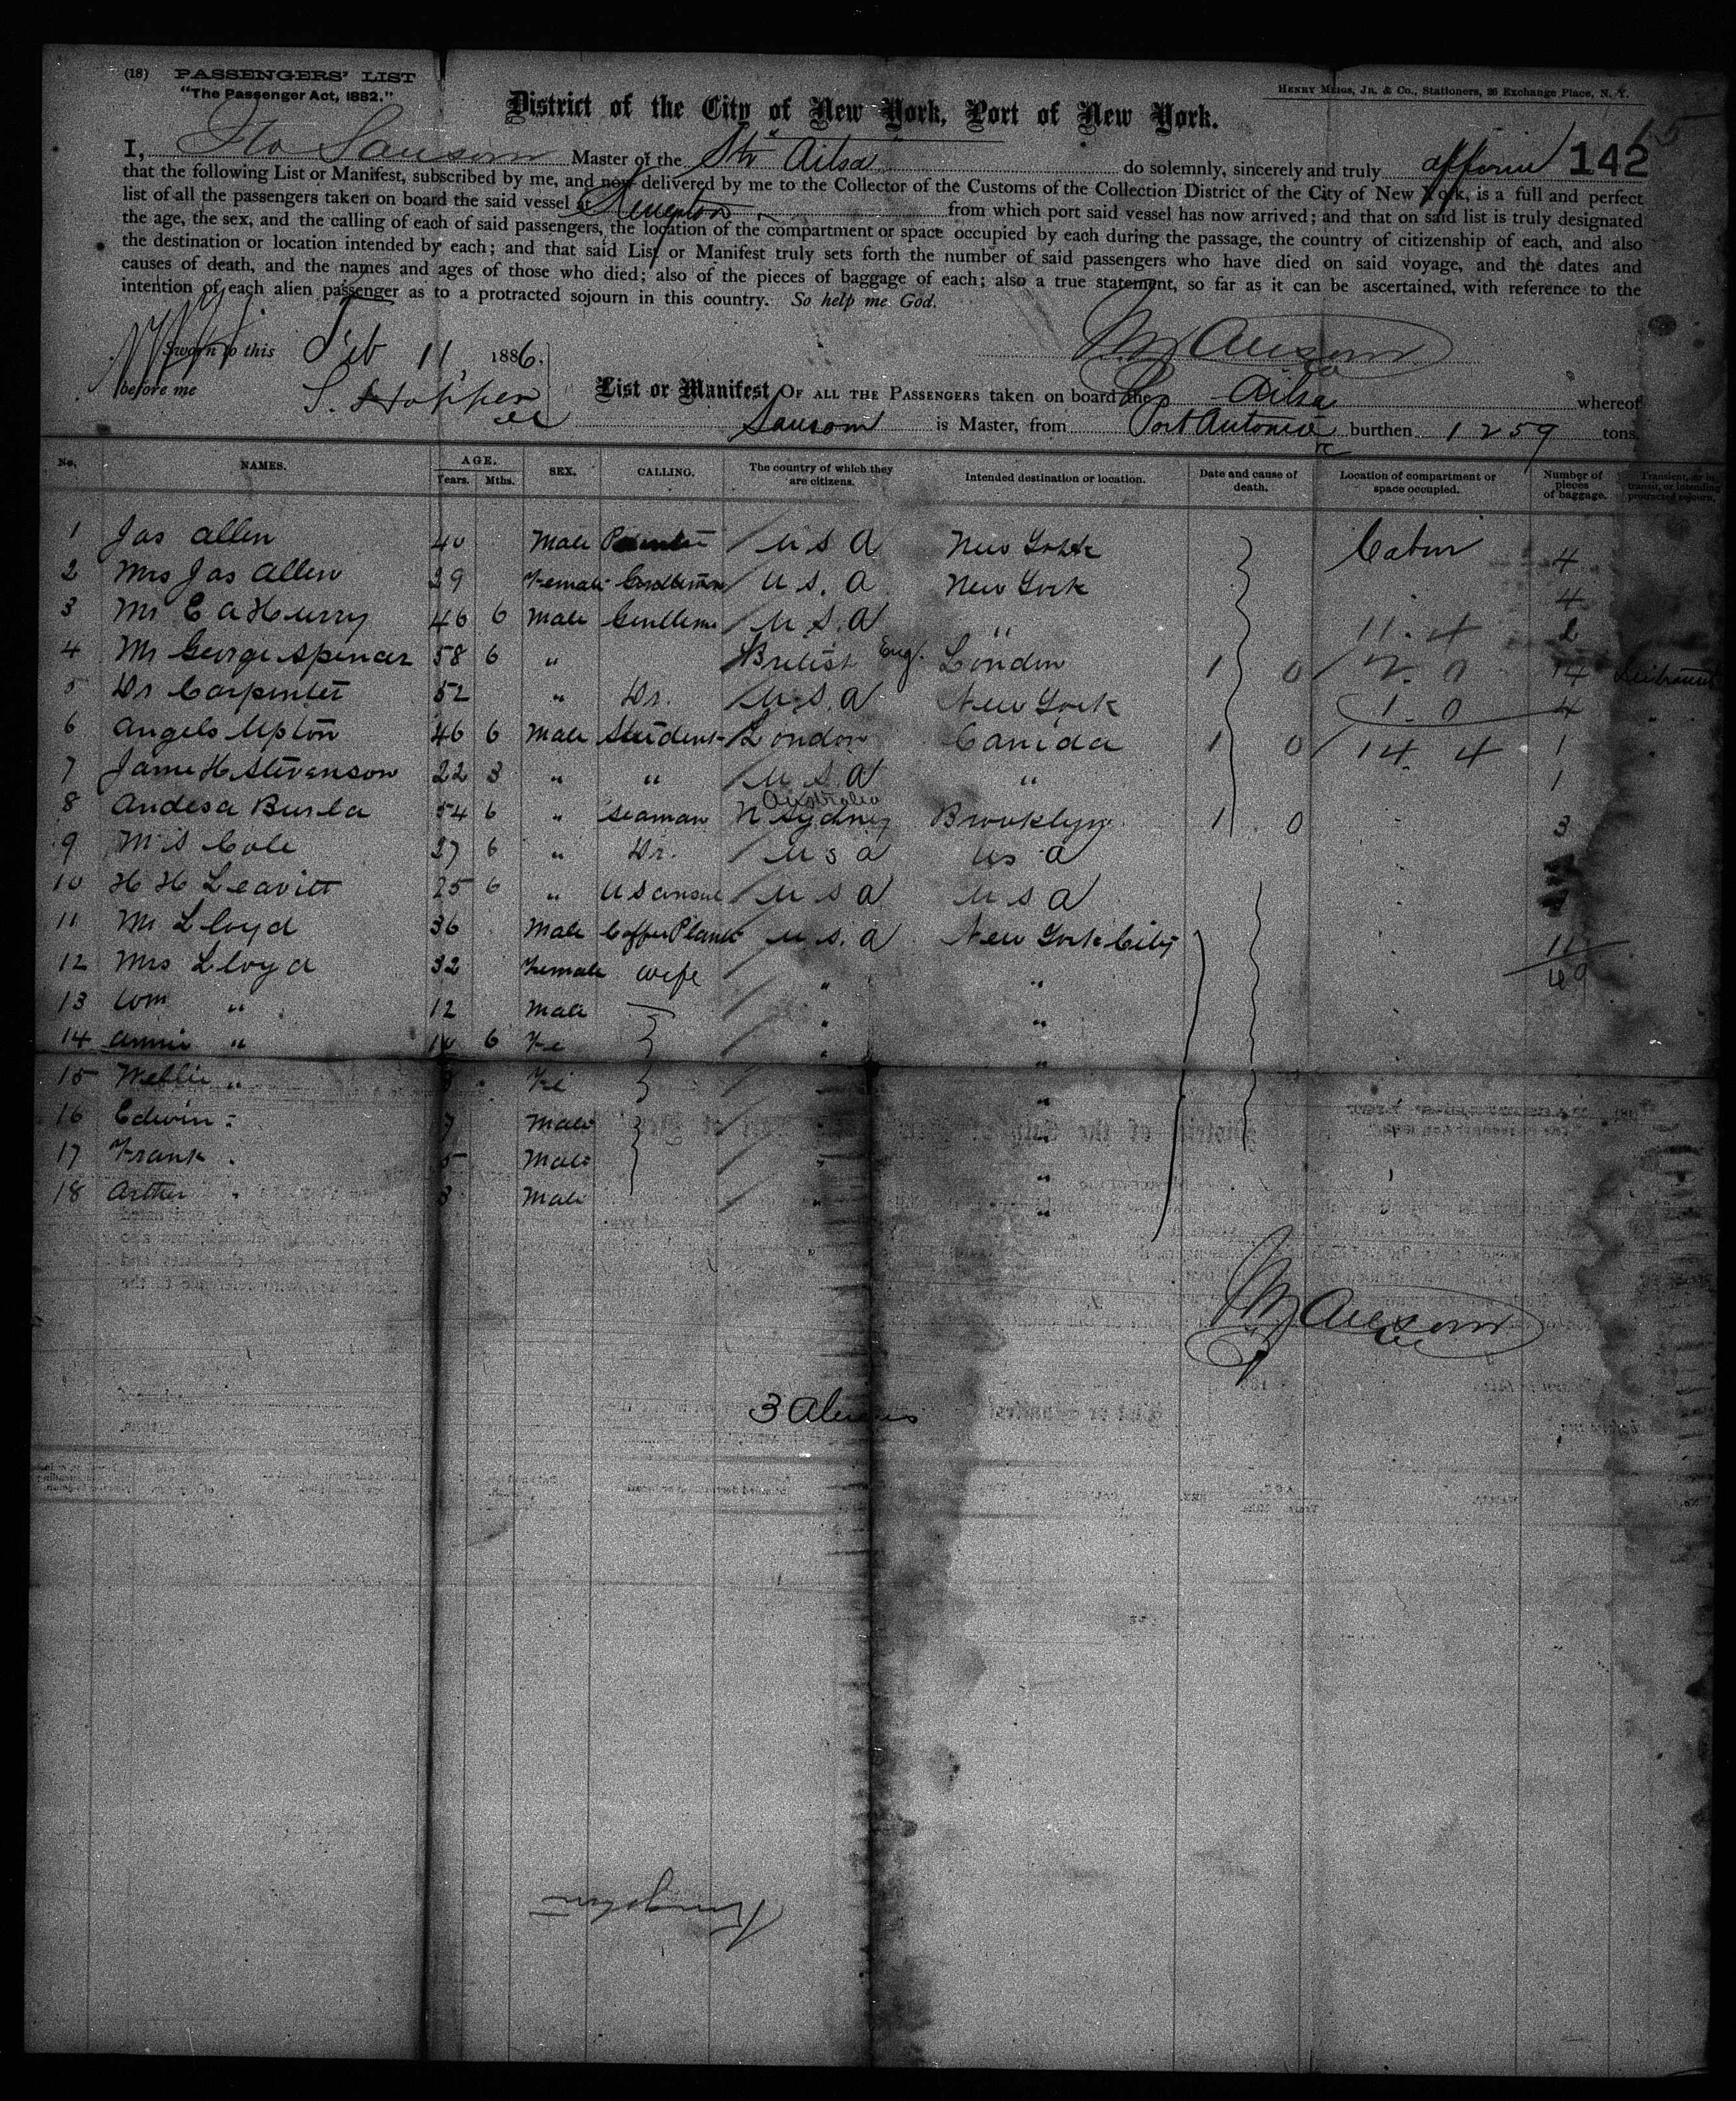 (18) PASSENGERS' LIST
"The Passenger Act, 1882."
HENRY MEIGS, JR. & CO., Stationers, 26 Exchange Place, N. Y.
District of the City of New York, Port of New York.
142
I, Sansom Master of the Str Ailsa do solemnly, sincerely and truly affirm
that the following List or Manifest, subscribed by me, and now delivered by me to the Collector of the Customs of the Collection District of the City of New York, is a full and perfect
list of all the passengers taken on board the said vessel at Kingston from which port said vessel has now arrived; and that on said list is truly designated
the age, the sex, and the calling of each of said passengers, the location of the compartment or space occupied by each during the passage, the country of citizenship of each, and also
the destination or location intended by each; and that said List or Manifest truly sets forth the number of said passengers who have died on said voyage, and the dates and
causes of death, and the names and ages of those who died; also of the pieces of baggage of each; also a true statement, so far as it can be ascertained, with reference to the
intention of each alien passenger as to a protracted sojourn in this country. So help me God.
Sworn to this Feb 11, 1886.
before me S. Hopper
Sansom
List or Manifest OF ALL THE PASSENGERS taken on board the Ailsa whereof
Sansom is Master, from Port Antonio burthen 1259 tons.
No. NAMES. AGE. Years. Mths. SEX. CALLING. The country of which they are citizens. Intended destination or location. Date and cause of death. Location of compartment or space occupied. Number of pieces of baggage. Transient, or in transit, or intending protracted sojourn.
1 Jas Allen 40 Male U S A New York Cabin 4
2 Mrs Jas Allen 29 Female U. S. A New York 4
3 Mr E A Hurry 46 6 Male Gentleman U. S. A " 11. 4 2
4 Mr George Spencer 58 6 " British Eng. London 1 0 2. 0 14
5 Dr Carpenter 52 " Dr. U. S. A New York 1. 0 4
6 Angelo Upton 46 6 Male Student London Canida 1 0 14. 4 1
7 Jame H Stevenson 22 3 " " U S A " 1
8 Andesa Burla 54 6 " Seaman N Sydney Australia Brooklyn 1 0 3
9 M S Cole 27 6 " Dr. U S A US A
10 H H Leavitt 25 6 " U S A U S A
11 Mr Lloyd 36 Male Coffee Plant U. S. A New York City 11
12 Mrs Lloyd 32 Female Wife " " 49
13 Wm " 12 Male " "
14 Annie " 10 6 Fe " "
15 " Fe "
16 Edwin " 7 Male "
17 Frank " 5 Male " "
18 Arther " 3 Male " "
Sansom
3 Aliens
Kingston